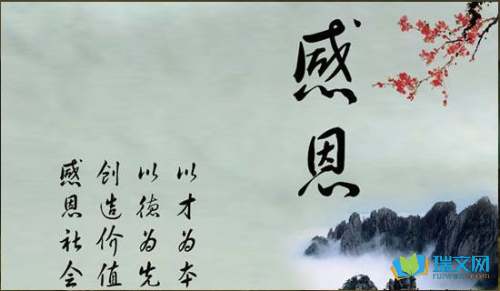 感恩
以才为本
以德为先
创造价值
感恩社会
瑞文网
ruiwen.com